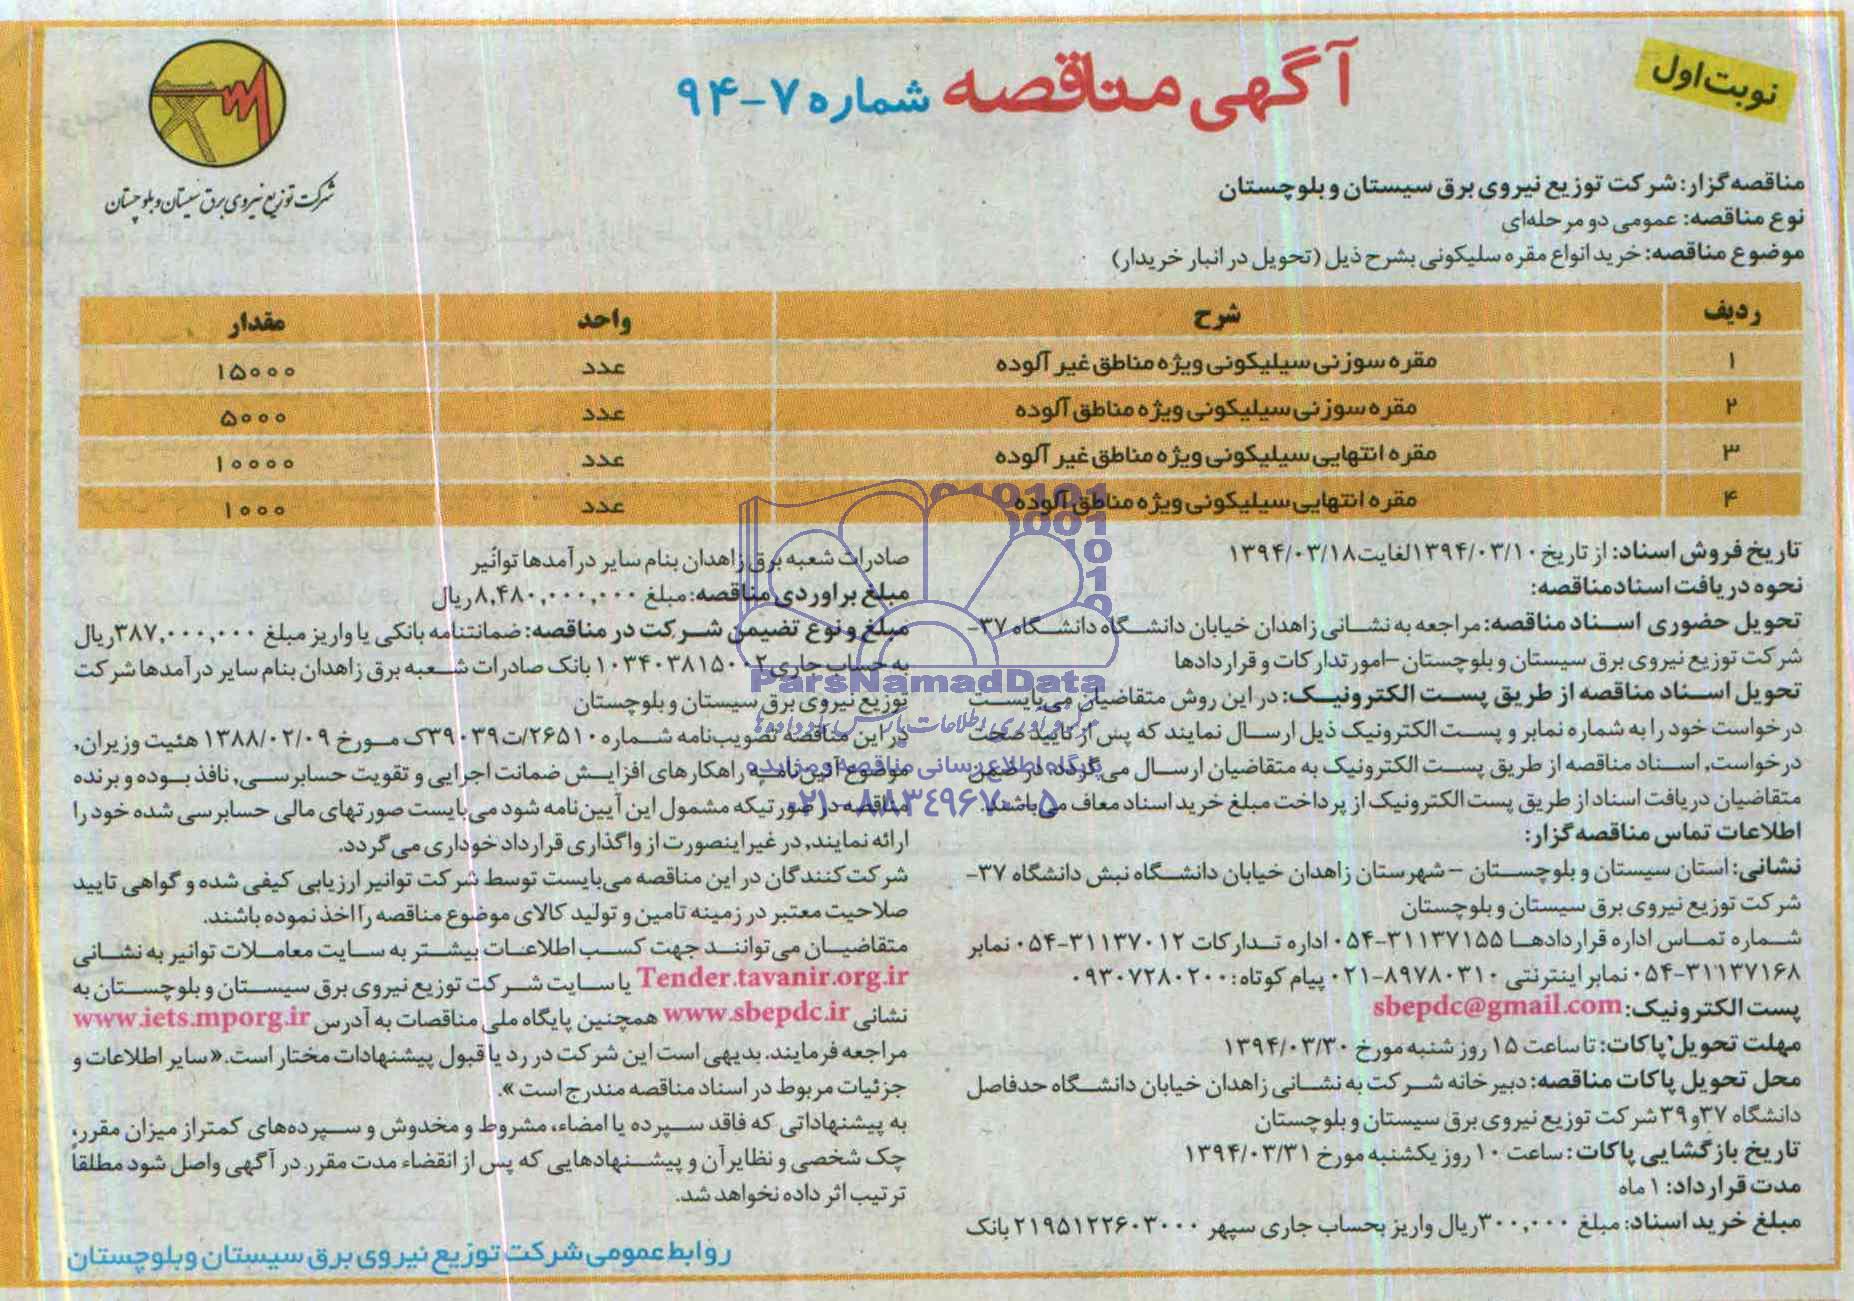 نوبت اول
آگهی مناقصه شماره ۷-۹۴
شرکت توزیع نیروی برق سیستان و بلوچستان
مناقصه گزار: شرکت توزیع نیروی برق سیستان و بلوچستان
نوع مناقصه: عمومی دو مرحله‌ای
موضوع مناقصه: خرید انواع مقره سلیکونی بشرح ذیل (تحویل در انبار خریدار)
ردیف شرح واحد مقدار
۱ مقره سوزنی سیلیکونی ویژه مناطق غیر آلوده عدد ۱۵۰۰۰
۲ مقره سوزنی سیلیکونی ویژه مناطق آلوده عدد ۵۰۰۰
۳ مقره انتهایی سیلیکونی ویژه مناطق غیر آلوده عدد ۱۰۰۰۰
۴ مقره انتهایی سیلیکونی ویژه مناطق آلوده عدد ۱۰۰۰
تاریخ فروش اسناد: از تاریخ ۱۳۹۴/۰۳/۱۰ لغایت ۱۳۹۴/۰۳/۱۸
نحوه دریافت اسناد مناقصه:
تحویل حضوری اسناد مناقصه: مراجعه به نشانی زاهدان خیابان دانشگاه دانشگاه ۳۷-
شرکت توزیع نیروی برق سیستان و بلوچستان -امور تدارکات و قراردادها
تحویل اسناد مناقصه از طریق پست الکترونیک: در این روش متقاضیان می‌بایست
درخواست خود را به شماره نمابر و پست الکترونیک ذیل ارسال نمایند که پس از تایید صحت
درخواست, اسناد مناقصه از طریق پست الکترونیک به متقاضیان ارسال می‌گردد, در ضمن
متقاضیان دریافت اسناد از طریق پست الکترونیک از پرداخت مبلغ خرید اسناد معاف می‌باشند.
اطلاعات تماس مناقصه گزار:
نشانی: استان سیستان و بلوچستان - شهرستان زاهدان خیابان دانشگاه نبش دانشگاه ۳۷-
شرکت توزیع نیروی برق سیستان و بلوچستان
شماره تماس اداره قراردادها ۳۱۱۳۷۱۵۵-۰۵۴ اداره تدارکات ۳۱۱۳۷۰۱۲-۰۵۴ نمابر
۳۱۱۳۷۱۶۸-۰۵۴ نمابر اینترنتی ۸۹۷۸۰۳۱۰-۰۲۱ پیام کوتاه: ۰۹۳۰۷۲۸۰۲۰۰
پست الکترونیک: sbepdc@gmail.com
مهلت تحویل پاکات: تا ساعت ۱۵ روز شنبه مورخ ۱۳۹۴/۰۳/۳۰
محل تحویل پاکات مناقصه: دبیرخانه شرکت به نشانی زاهدان خیابان دانشگاه حدفاصل
دانشگاه ۳۷ و ۳۹ شرکت توزیع نیروی برق سیستان و بلوچستان
تاریخ بازگشایی پاکات: ساعت ۱۰ روز یکشنبه مورخ ۱۳۹۴/۰۳/۳۱
مدت قرارداد: ۱ ماه
مبلغ خرید اسناد: مبلغ ۳۰۰,۰۰۰ ریال واریز بحساب جاری سپهر ۲۱۹۵۱۲۲۶۰۳۰۰۰ بانک
صادرات شعبه برق زاهدان بنام سایر درآمدها توانیر
مبلغ براوردی مناقصه: مبلغ ۸,۴۸۰,۰۰۰,۰۰۰ ریال
مبلغ و نوع تضیمن شرکت در مناقصه: ضمانتنامه بانکی یا واریز مبلغ ۳۸۷,۰۰۰,۰۰۰ ریال
به حساب جاری ۱۰۳۴۰۳۸۱۵۰۰۲ بانک صادرات شعبه برق زاهدان بنام سایر درآمدها شرکت
توزیع نیروی برق سیستان و بلوچستان
در این مناقصه تصویب‌نامه شماره ۲۶۵۱۰/ت۳۹۰۳۹ک مورخ ۱۳۸۸/۰۲/۰۹ هئیت وزیران,
موضوع آئین‌نامه راهکارهای افزایش ضمانت اجرایی و تقویت حسابرسی, نافذ بوده و برنده
مناقصه در صورتیکه مشمول این آیین‌نامه شود می‌بایست صورتهای مالی حسابرسی شده خود را
ارائه نمایند, در غیر اینصورت از واگذاری قرارداد خوداری می گردد.
شرکت کنندگان در این مناقصه می‌بایست توسط شرکت توانیر ارزیابی کیفی شده و گواهی تایید
صلاحیت معتبر در زمینه تامین و تولید کالای موضوع مناقصه را اخذ نموده باشند.
متقاضیان می‌توانند جهت کسب اطلاعات بیشتر به سایت معاملات توانیر به نشانی
Tender.tavanir.org.ir یا سایت شرکت توزیع نیروی برق سیستان و بلوچستان به
نشانی www.sbepdc.ir همچنین پایگاه ملی مناقصات به آدرس www.iets.mporg.ir
مراجعه فرمایند. بدیهی است این شرکت در رد یا قبول پیشنهادات مختار است. «سایر اطلاعات و
جزئیات مربوط در اسناد مناقصه مندرج است».
به پیشنهاداتی که فاقد سپرده یا امضاء، مشروط و مخدوش و سپرده‌های کمتر از میزان مقرر،
چک شخصی و نظایر آن و پیشنهادهایی که پس از انقضاء مدت مقرر در آگهی واصل شود مطلقاً
ترتیب اثر داده نخواهد شد.
روابط عمومی شرکت توزیع نیروی برق سیستان و بلوچستان
ParsNamadData
پایگاه اطلاع رسانی مناقصه و مزایده
۰۲۱-۸۸۳۴۹۶۷۰-۵